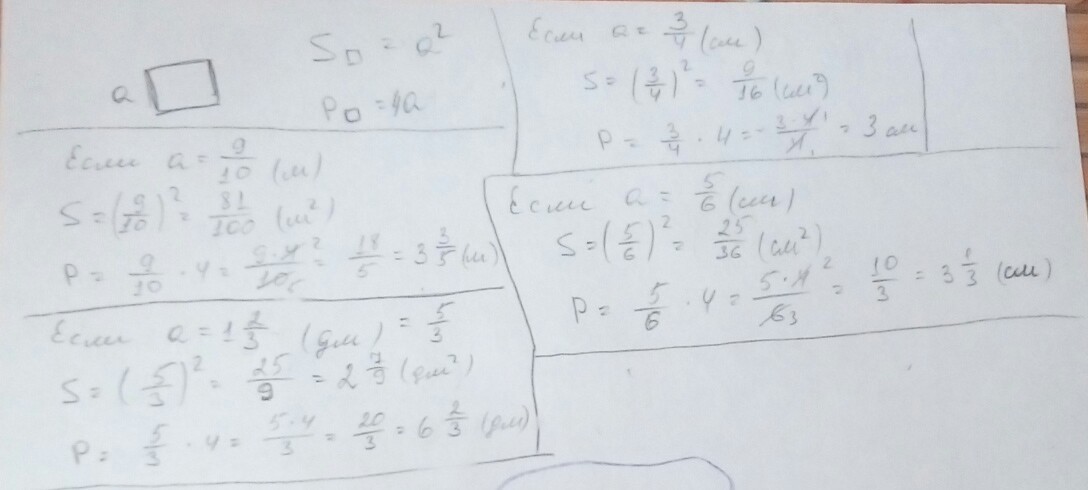 a
S□ = a²
P□ = 4a
Если a = 9/10 (м)
S = (9/10)² = 81/100 (м²)
P = 9/10 · 4 = 9·4²/10₅ = 18/5 = 3 3/5 (м)
Если a = 1 2/3 (дм) = 5/3
S = (5/3)² = 25/9 = 2 7/9 (дм²)
P = 5/3 · 4 = 5·4/3 = 20/3 = 6 2/3 (дм)
Если a = 3/4 (см)
S = (3/4)² = 9/16 (см²)
P = 3/4 · 4 = 3·4¹/4₁ = 3 см
Если a = 5/6 (см)
S = (5/6)² = 25/36 (см²)
P = 5/6 · 4 = 5·4²/6₃ = 10/3 = 3 1/3 (см)